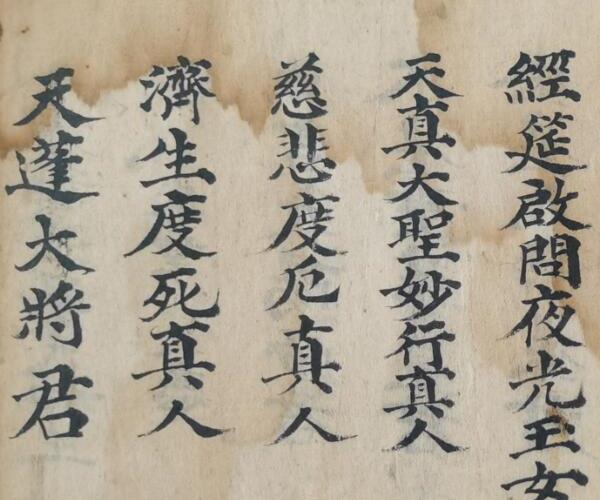 經筵啟問夜光王女
天真大聖妙行真人
慈悲度厄真人
濟生度死真人
天蓬大將君